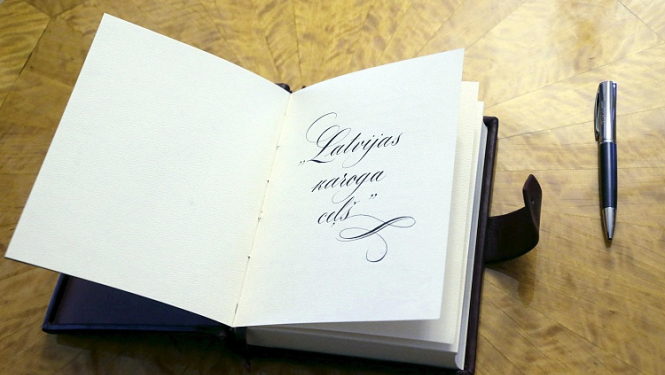 „Latvijas
karoga
ceļš”